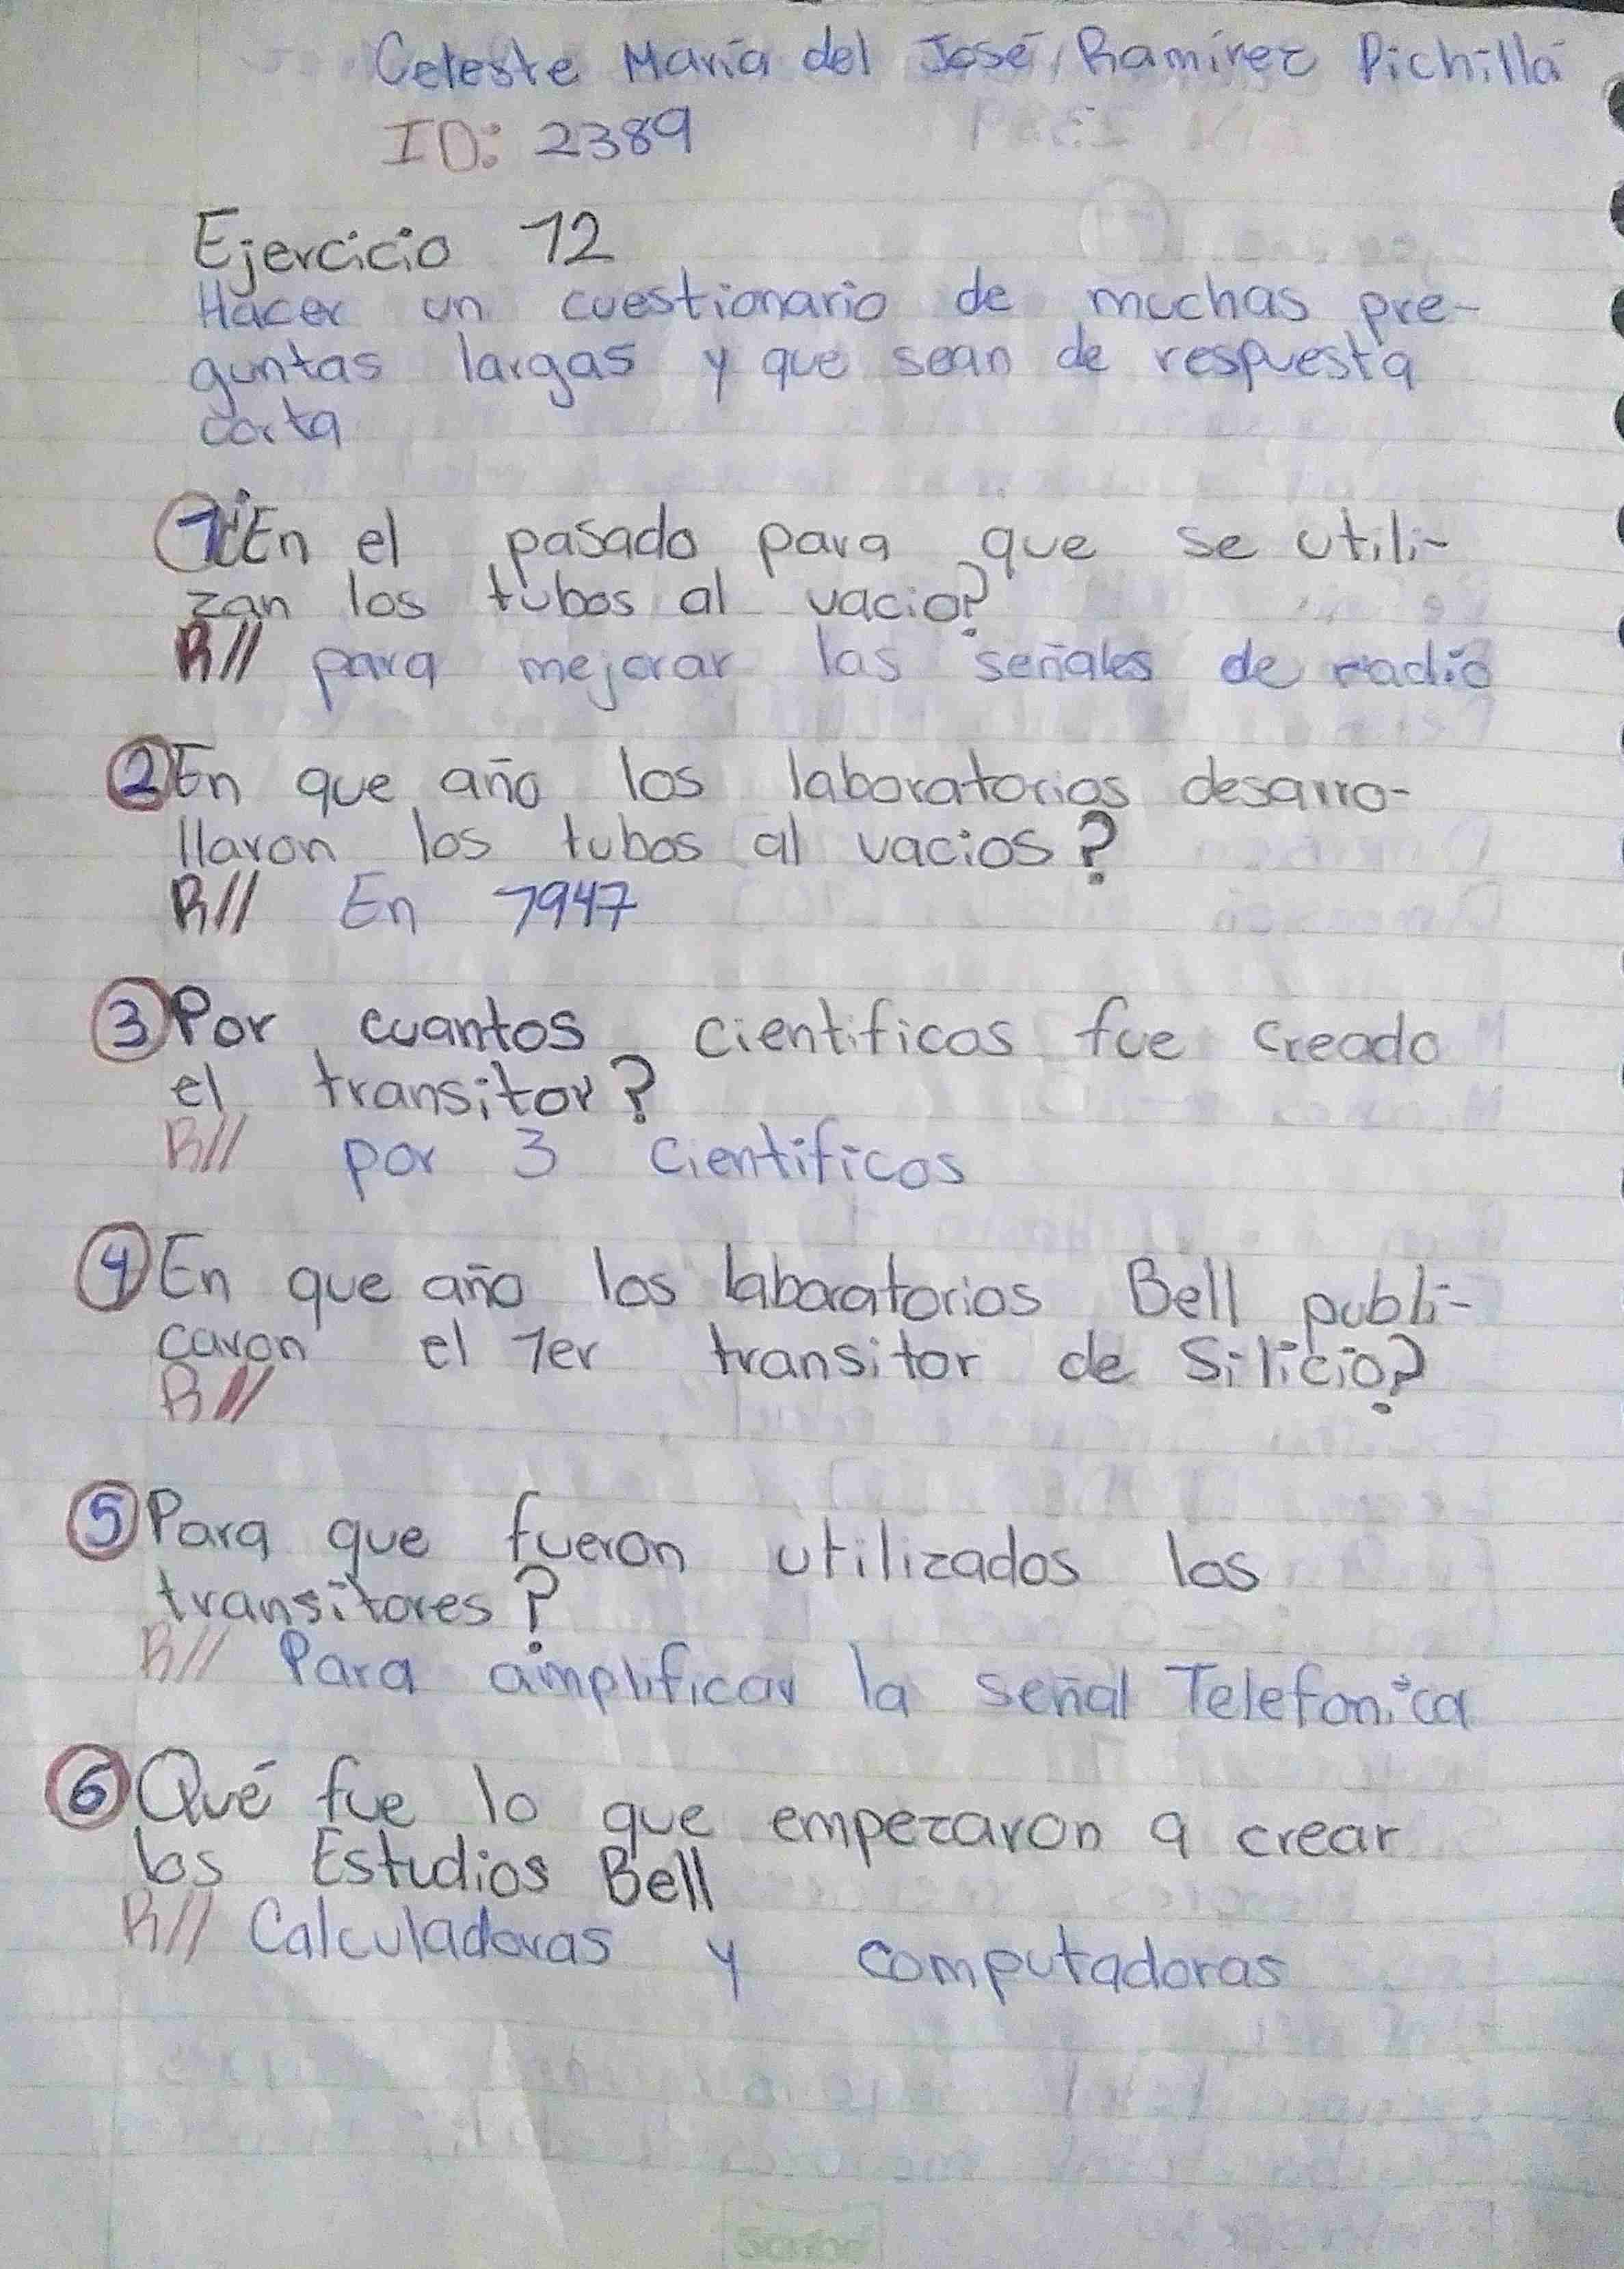 Celeste María del José Ramírez Pichillá
ID: 2389
Ejercicio 12
Hacer un cuestionario de muchas pre-
guntas largas y que sean de respuesta
corta
1 ¿En el pasado para que se utili-
zan los tubos al vacio?
R// para mejorar las señales de radio
2 En que año los laboratorios desarro-
llaron los tubos al vacios?
R// En 1947
3 Por cuantos cientificos fue creado
el transitor?
R// por 3 cientificos
4 En que año los laboratorios Bell publi-
caron el 1er transitor de Silicio?
R//
5 Para que fueron utilizados los
transitores?
R// Para amplificar la señal Telefonica
6 Qué fue lo que empezaron a crear
los Estudios Bell
R// Calculadoras y computadoras